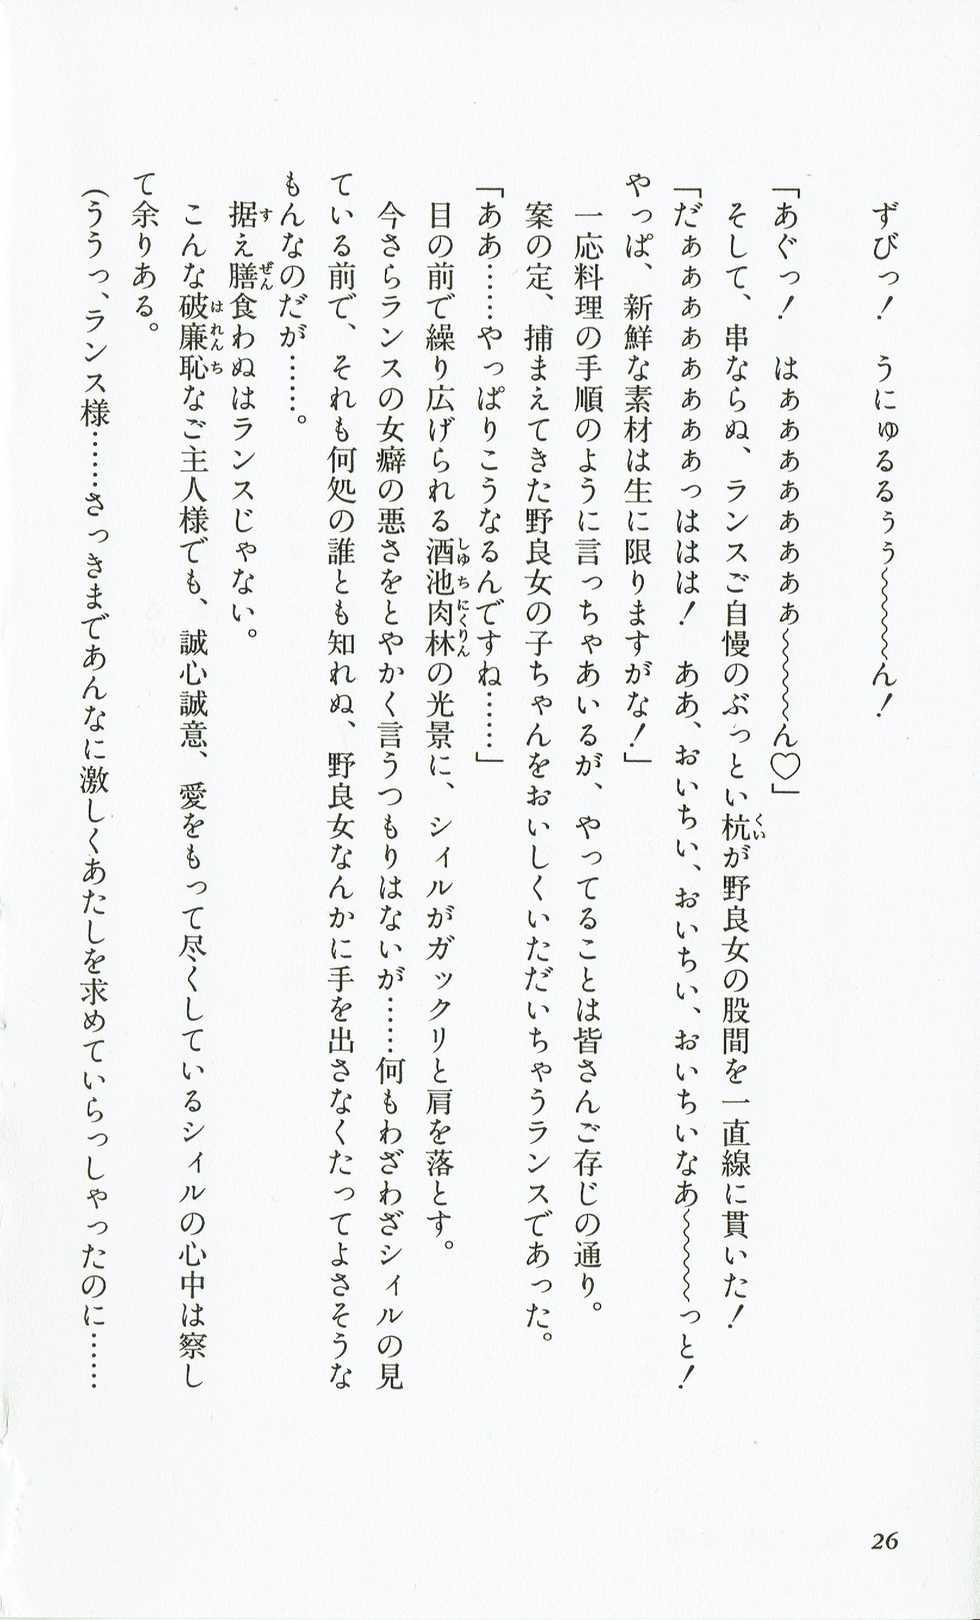 ずびっ！　うにゅるるぅぅ～～～～ん！
「あぐっ！　はぁぁぁぁぁぁぁぁ～～～～ん♡」
そして、串ならぬ、ランスご自慢のぶっとい杭が野良女の股間を一直線に貫いた！
「だぁぁぁぁぁぁぁぁっははは！　ああ、おいちい、おいちい、おいちいなあ～～～～っと！
やっぱ、新鮮な素材は生に限りますがな！」
一応料理の手順のように言っちゃあいるが、やってることは皆さんご存じの通り。
案の定、捕まえてきた野良女の子ちゃんをおいしくいただいちゃうランスであった。
「ああ……やっぱりこうなるんですね……」
目の前で繰り広げられる酒池肉林の光景に、シィルがガックリと肩を落とす。
今さらランスの女癖の悪さをとやかく言うつもりはないが……何もわざわざシィルの見
ている前で、それも何処の誰とも知れぬ、野良女なんかに手を出さなくたってよさそうな
もんなのだが……。
据え膳食わぬはランスじゃない。
こんな破廉恥なご主人様でも、誠心誠意、愛をもって尽くしているシィルの心中は察し
て余りある。
（ううっ、ランス様……さっきまであんなに激しくあたしを求めていらっしゃったのに……
26